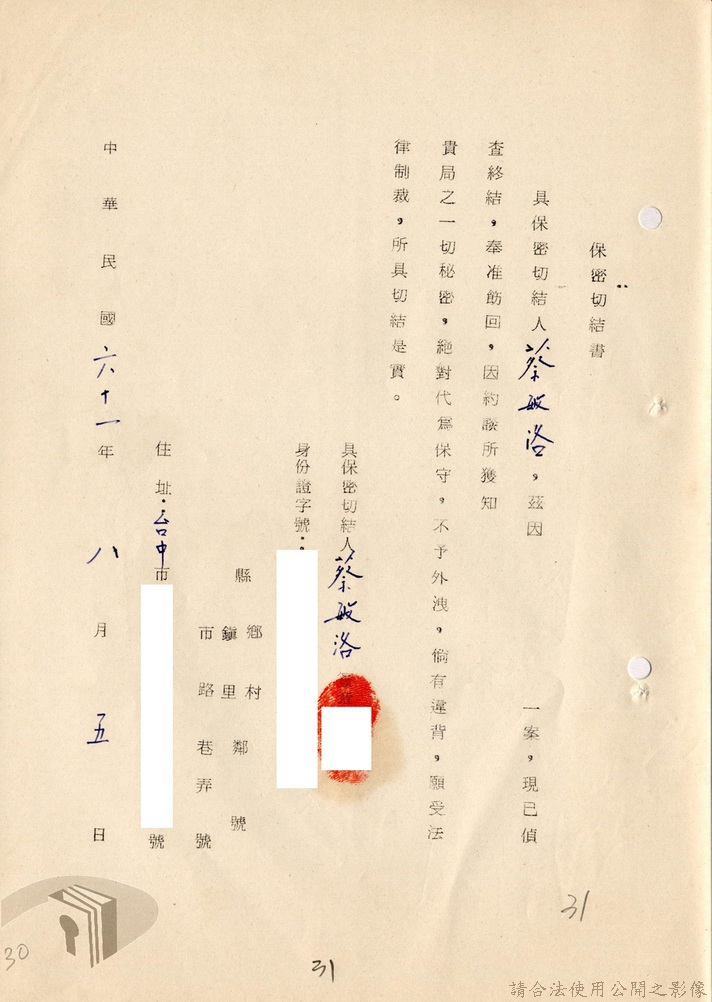 保密切結書
具保密切結人蔡敏洛，茲因　一案，現已偵
查終結，奉准飭回，因約談所獲知
貴局之一切秘密，絕對代為保守，不予外洩，倘有違背，願受法
律制裁，所具切結是實。
具保密切結人蔡敏洛
身份證字號：
縣
鄉鎮市
村里路
鄰巷弄
號號
住址：台中市　號
中華民國六十一年八月五日
31
31
30
請合法使用公開之影像